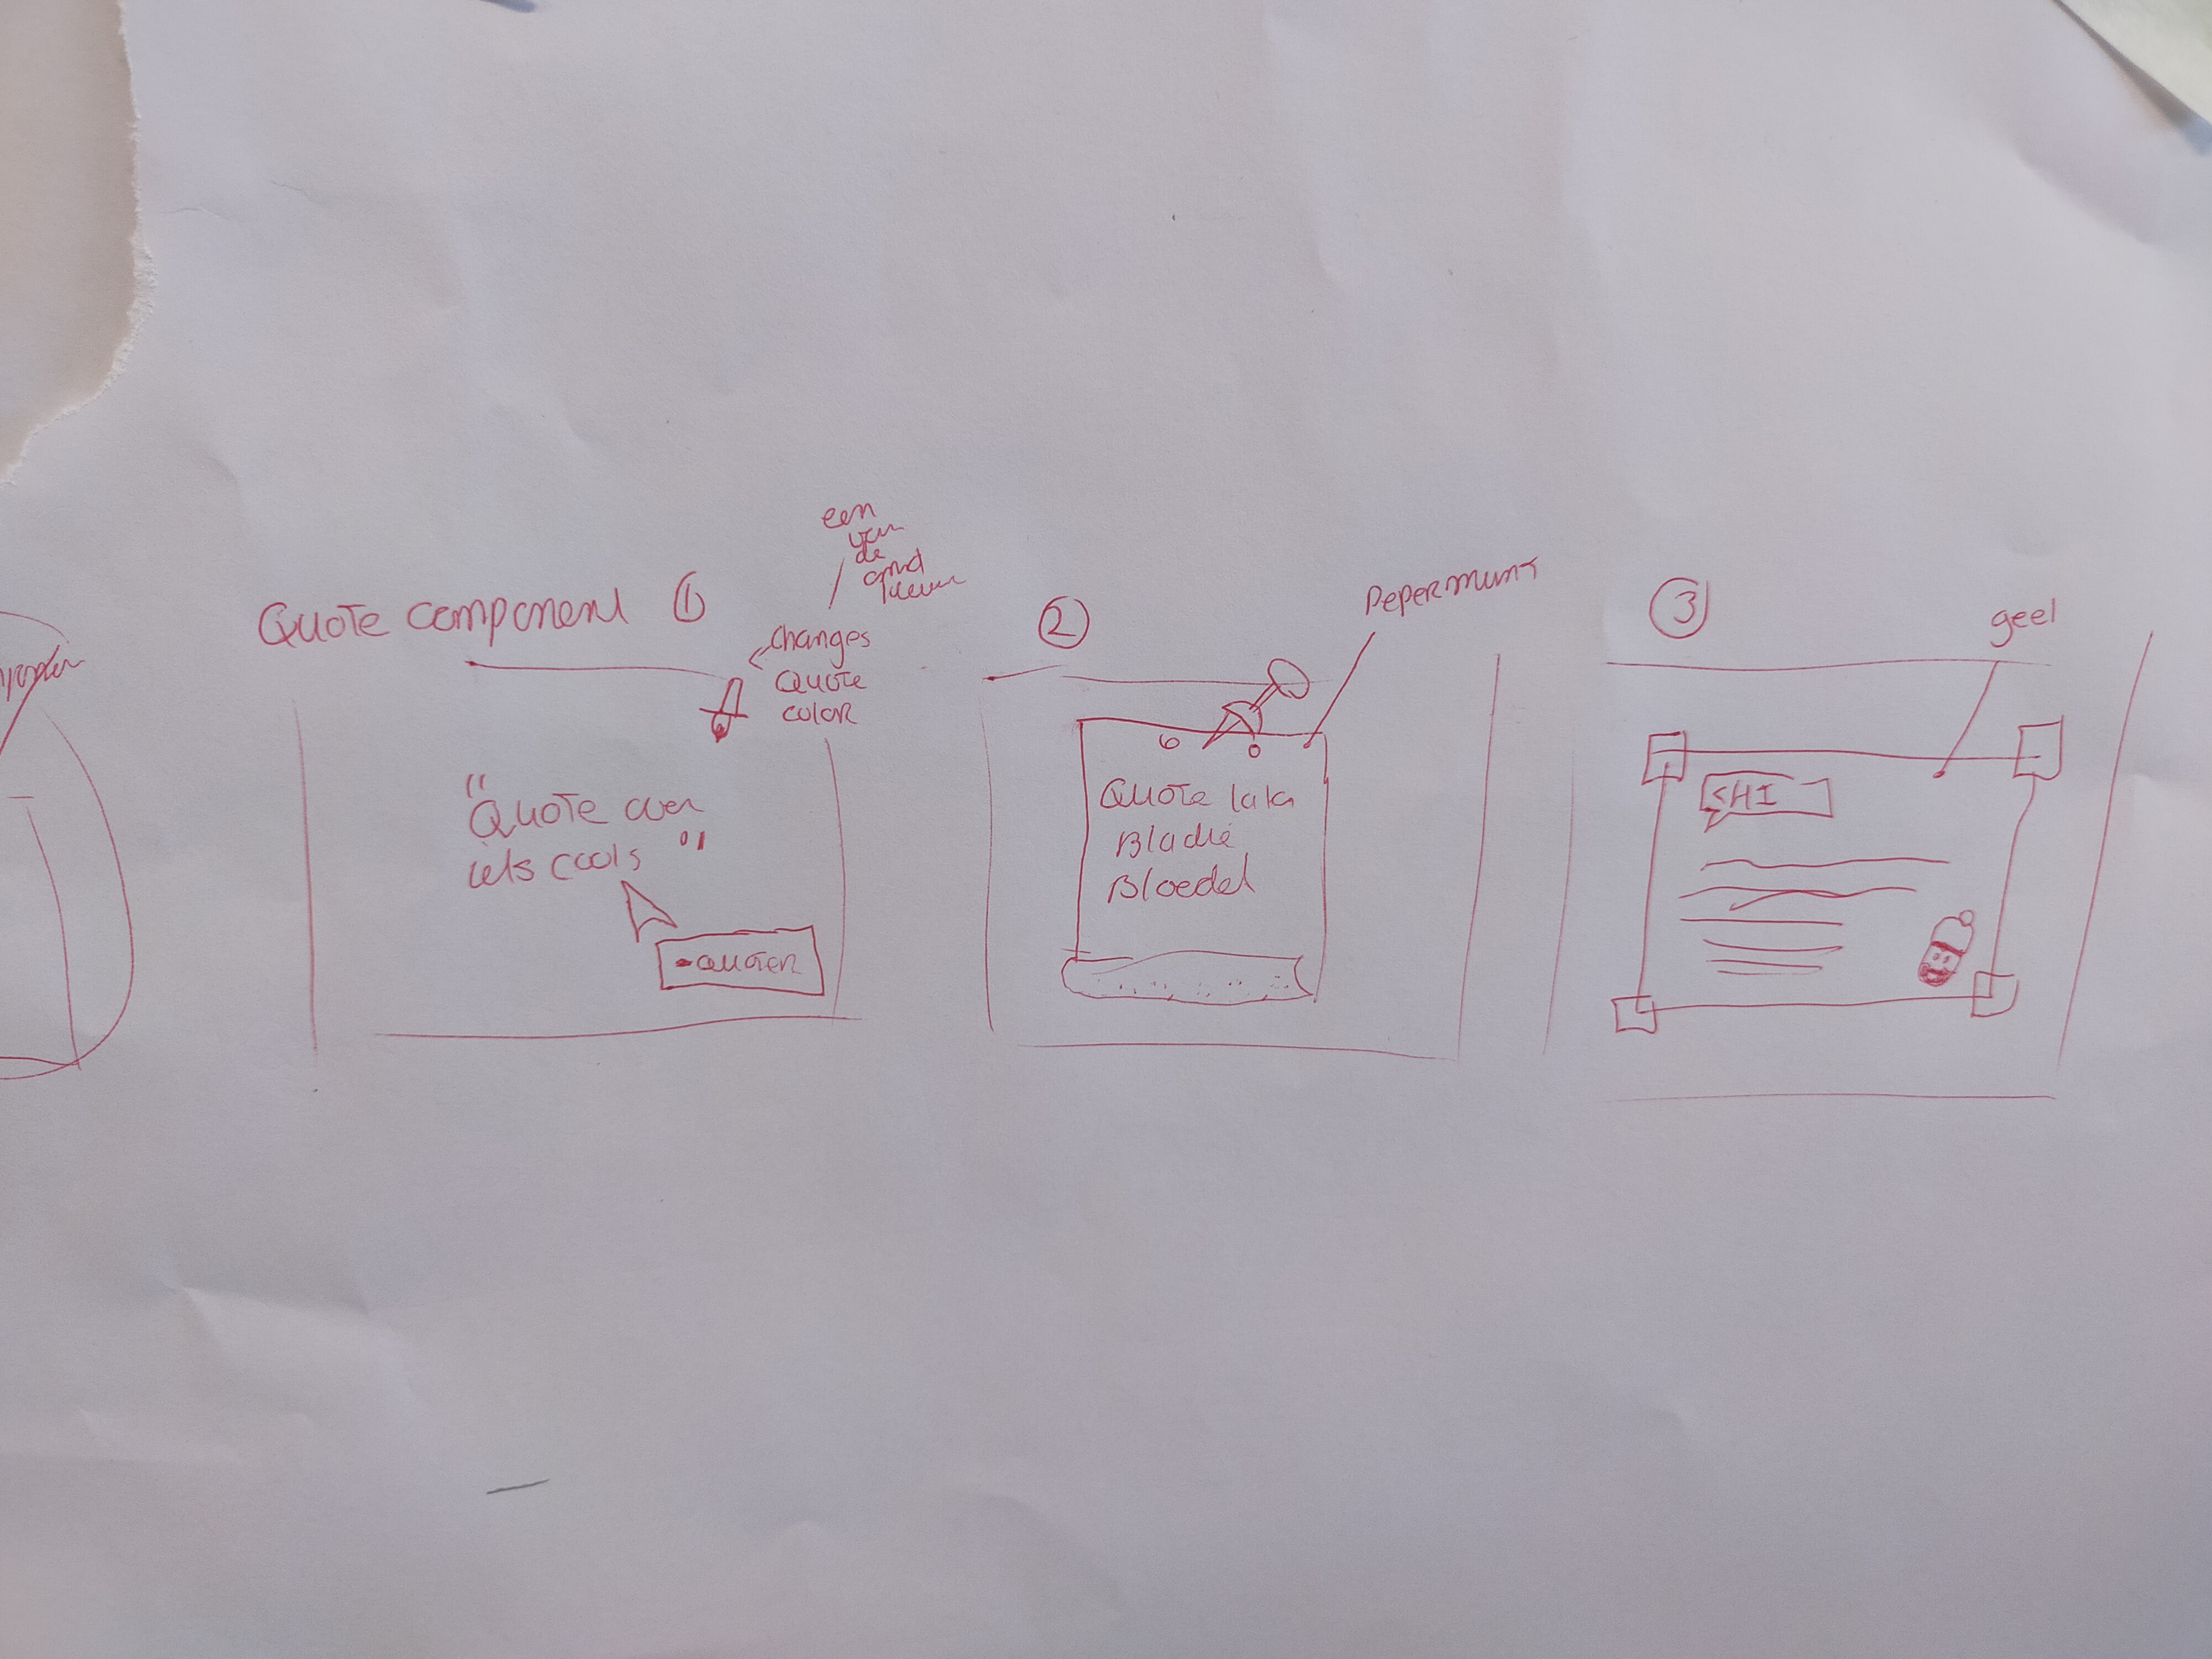 Quote component ①
een
van
de
changes
Quote
color
"
Quote over
iets cools "
-Quoter
②
Pepermunt
Quote lala
Bladie
Bloedel
③
geel
HI